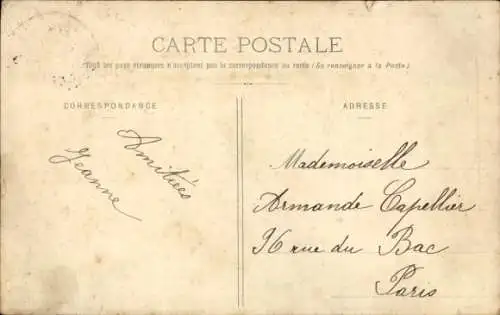 CARTE POSTALE
Tous les pays étrangers n'acceptent pas la correspondance au recto (Se renseigner à la Poste)
CORRESPONDANCE
ADRESSE
Amitiées
Jeanne
Mademoiselle
Armande Capellier
96 rue du Bac
Paris